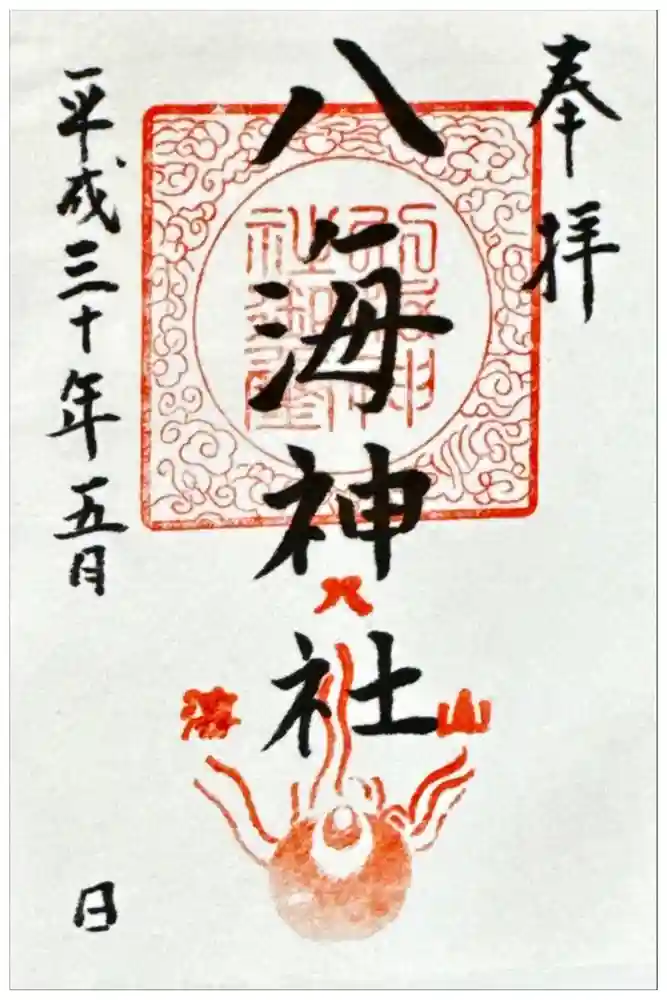 奉拝
八海神社
八
海
山
平成三十年五月 日